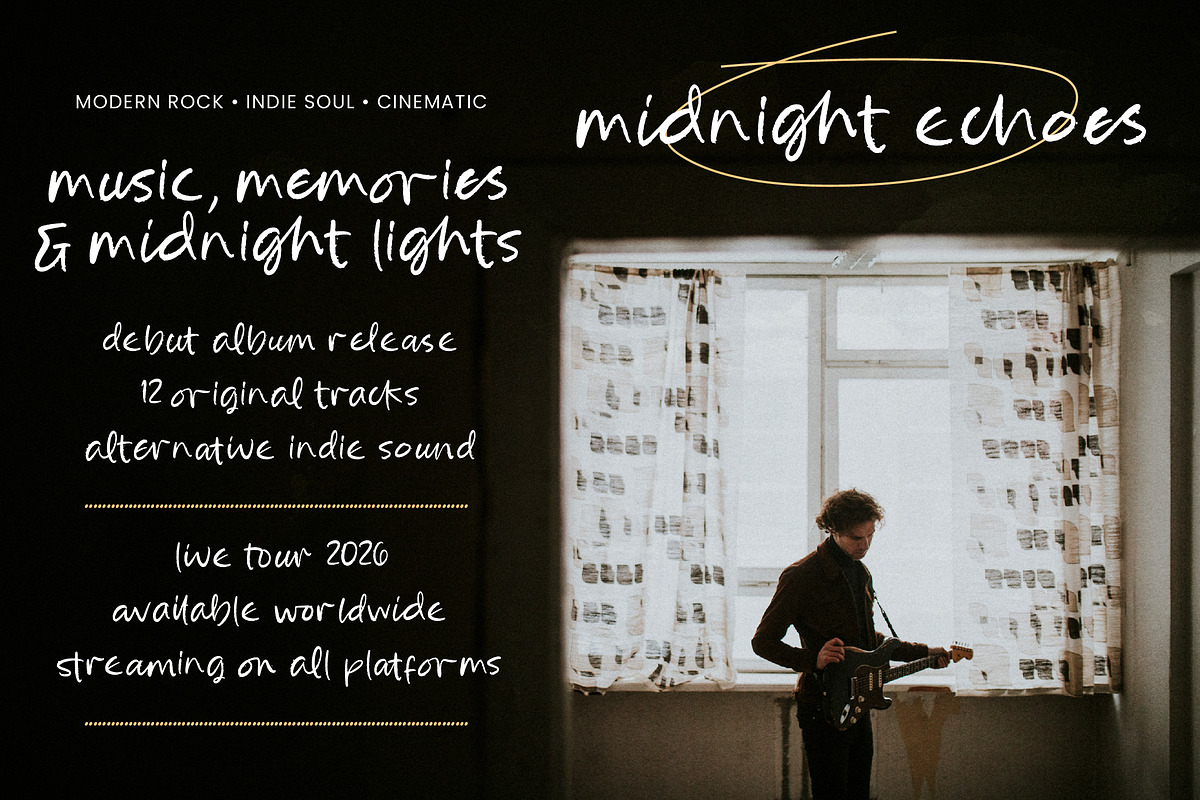 MODERN ROCK • INDIE SOUL • CINEMATIC
midnight echoes
music, memories
& midnight lights
debut album release
12 original tracks
alternative indie sound
live tour 2026
available worldwide
streaming on all platforms